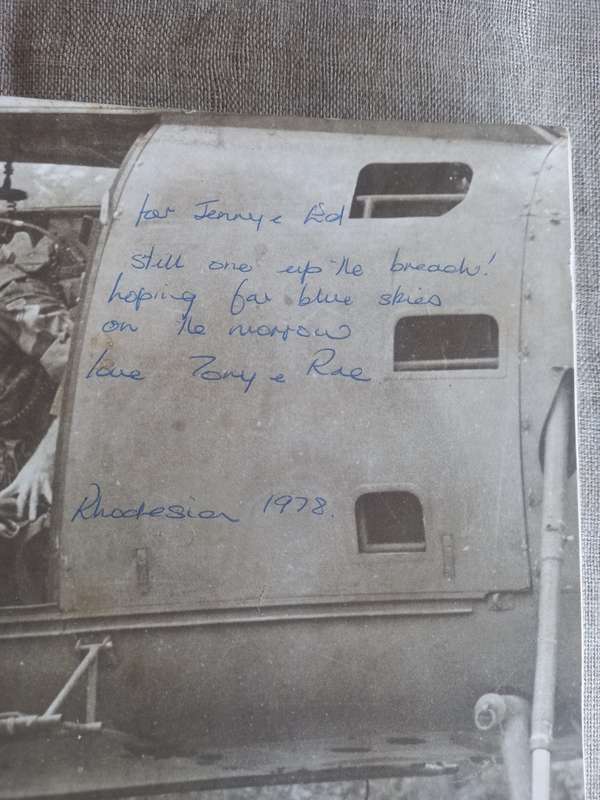 for Jenny & Ed
still one up the breach!
hoping for blue skies
on the morrow
love Tony & Rae
Rhodesia 1978.